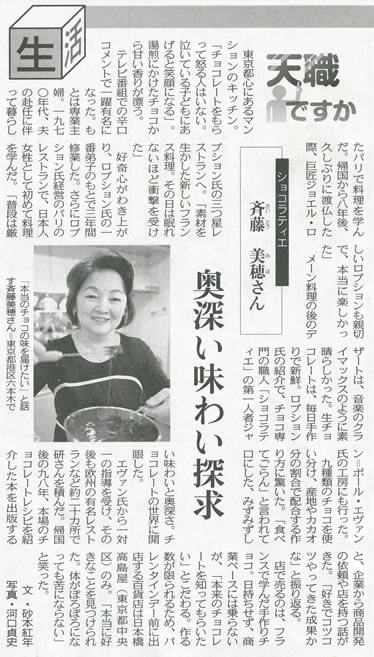 生活
天職ですか
ショコラティエ
斉藤 美穂さん
さいとう みほ
奥深い味わい探求
東京都心にあるマン
ションのキッチン。
「チョコレートをもら
って怒る人はいない。
泣いている子どもにあ
げると笑顔になる」。
湯煎にかけたチョコか
ら甘い香りが漂う。
テレビ番組での辛口
コメントで一躍有名に
なった。も
とは専業主
婦。一九七
〇年代、夫
の赴任に伴
って暮らし
たパリで料理を学ん
だ。帰国から八年後、
久しぶりに渡仏した
際、巨匠ジョエル・ロ
ブション氏の三つ星レ
ストランへ。「素材を
生かした新しいフラン
ス料理。その日は眠れ
ないほど衝撃を受け
た」
好奇心がわき上が
り、ロブション氏の一
番弟子のもとで三年間
修業した。さらにロブ
ション氏経営のパリの
レストランで、日本人
女性として初めて料理
を学んだ。「普段は厳
しいロブションも親切
で、本当に楽しかっ
た」
メーン料理の後のデ
ザートは、音楽のクラ
イマックスのように素
晴らしかった。生チョ
コレートは、毎日手作
りで新鮮。ロブション
氏の紹介で、チョコ専
門の職人「ショコラテ
ィエ」の第一人者ジャ
ン=ポール・エヴァン
氏の工房にも行った。
九種類のチョコを使
い分け、産地やカカオ
分の割合で配合する作
り方に驚いた。「食べ
てごらん」と言われて
口にした、みずみずし
い味わいと奥深さ。チ
ョコレートの世界に開
眼した。
エヴァン氏から一対
一の指導を受け、その
後も欧州の有名レスト
ランなど約二十カ所で
研さんを積んだ。帰国
後の九八年、本場のチ
ョコレートレシピを紹
介した本を出版する
と、企業から商品開発
の依頼や店を持つ話が
きた。「好きでコツコ
ツやってきた成果か
な」と振り返る。
店で売るのは、フラ
ンスで学んだ手作りチ
ョコ。日持ちせず、商
業ベースには乗らない
が、「本来のチョコレ
ートを知ってもらいた
い」とこだわる。作る
数が限られるため、バ
レンタインデー前に出
店する百貨店は日本橋
高島屋(東京都中央
区)のみ。「本当に好
きなことを見つけられ
た。体がぼろぼろにな
っても苦にならない」
と笑った。
文 砂本紅年
写真・河口貞史
「本当のチョコの味を届けたい」と話
す斉藤美穂さん=東京都港区六本木で